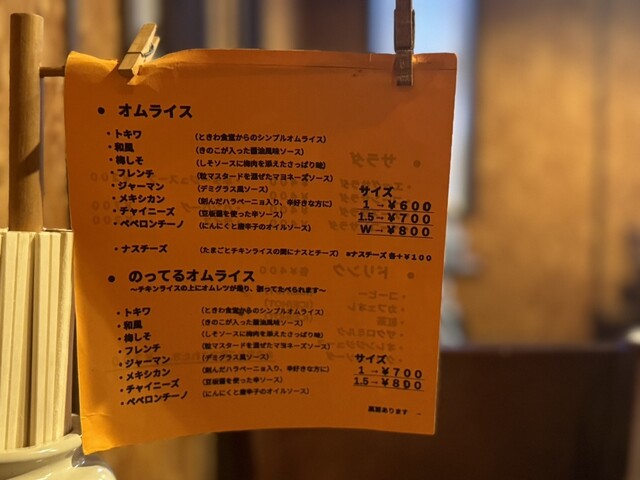 ● オムライス
・トキワ (ときわ食堂からのシンプルオムライス)
・和風 (きのこが入った醤油風味ソース)
・梅しそ (しそソースに梅肉を添えたさっぱり味)
・フレンチ (粒マスタードを混ぜたマヨネーズソース)
・ジャーマン (デミグラス風ソース) サイズ
・メキシカン (刻んだハラペーニョ入り、辛好きな方に) 1→¥600
・チャイニーズ (豆板醤を使った辛ソース) 1.5→¥700
・ペペロンチーノ (にんにくと唐辛子のオイルソース) W→¥800
・ナスチーズ (たまごとチキンライスの間にナスとチーズ) ※ナスチーズ 各+¥100
● のってるオムライス
〜チキンライスの上にオムレツが乗り、割ってたべられます〜
・トキワ (ときわ食堂からのシンプルオムライス)
・和風 (きのこが入った醤油風味ソース)
・梅しそ (しそソースに梅肉を添えたさっぱり味)
・フレンチ (粒マスタードを混ぜたマヨネーズソース)
・ジャーマン (デミグラス風ソース) サイズ
・メキシカン (刻んだハラペーニョ入り、辛好きな方に) 1→¥700
・チャイニーズ (豆板醤を使った辛ソース) 1.5→¥800
・ペペロンチーノ (にんにくと唐辛子のオイルソース)
裏面あります